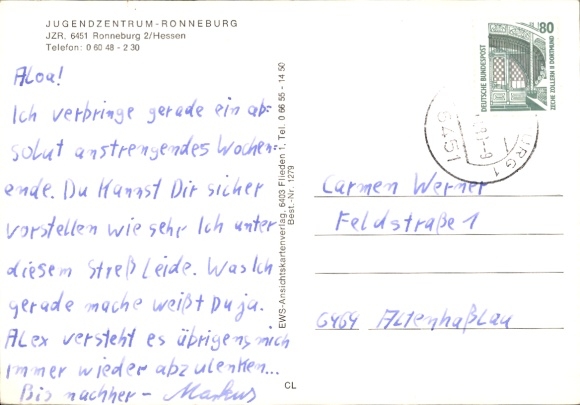 JUGENDZENTRUM-RONNEBURG
JZR, 6451 Ronneburg 2/Hessen
Telefon: 0 60 48 - 2 30
Aloa!
Ich verbringe gerade ein ab-
solut anstrengendes Wochen-
ende. Du Kannst Dir sicher
vorstellen wie sehr Ich unter
diesem Streß Leide. Was Ich
gerade mache weißt Du ja.
Alex versteht es übrigens mich
immer wieder abzulenken...
Bis nachher - Markus
EWS-Ansichtskartenverlag, 6403 Flieden 1, Tel. 0 66 55 - 14 50
Best.-Nr. 1279
CL
80
DEUTSCHE BUNDESPOST
ZECHE ZOLLERN II DORTMUND
6451
URG 1
Carmen Werner
Feldstraße 1
6464 Altenhaßlau